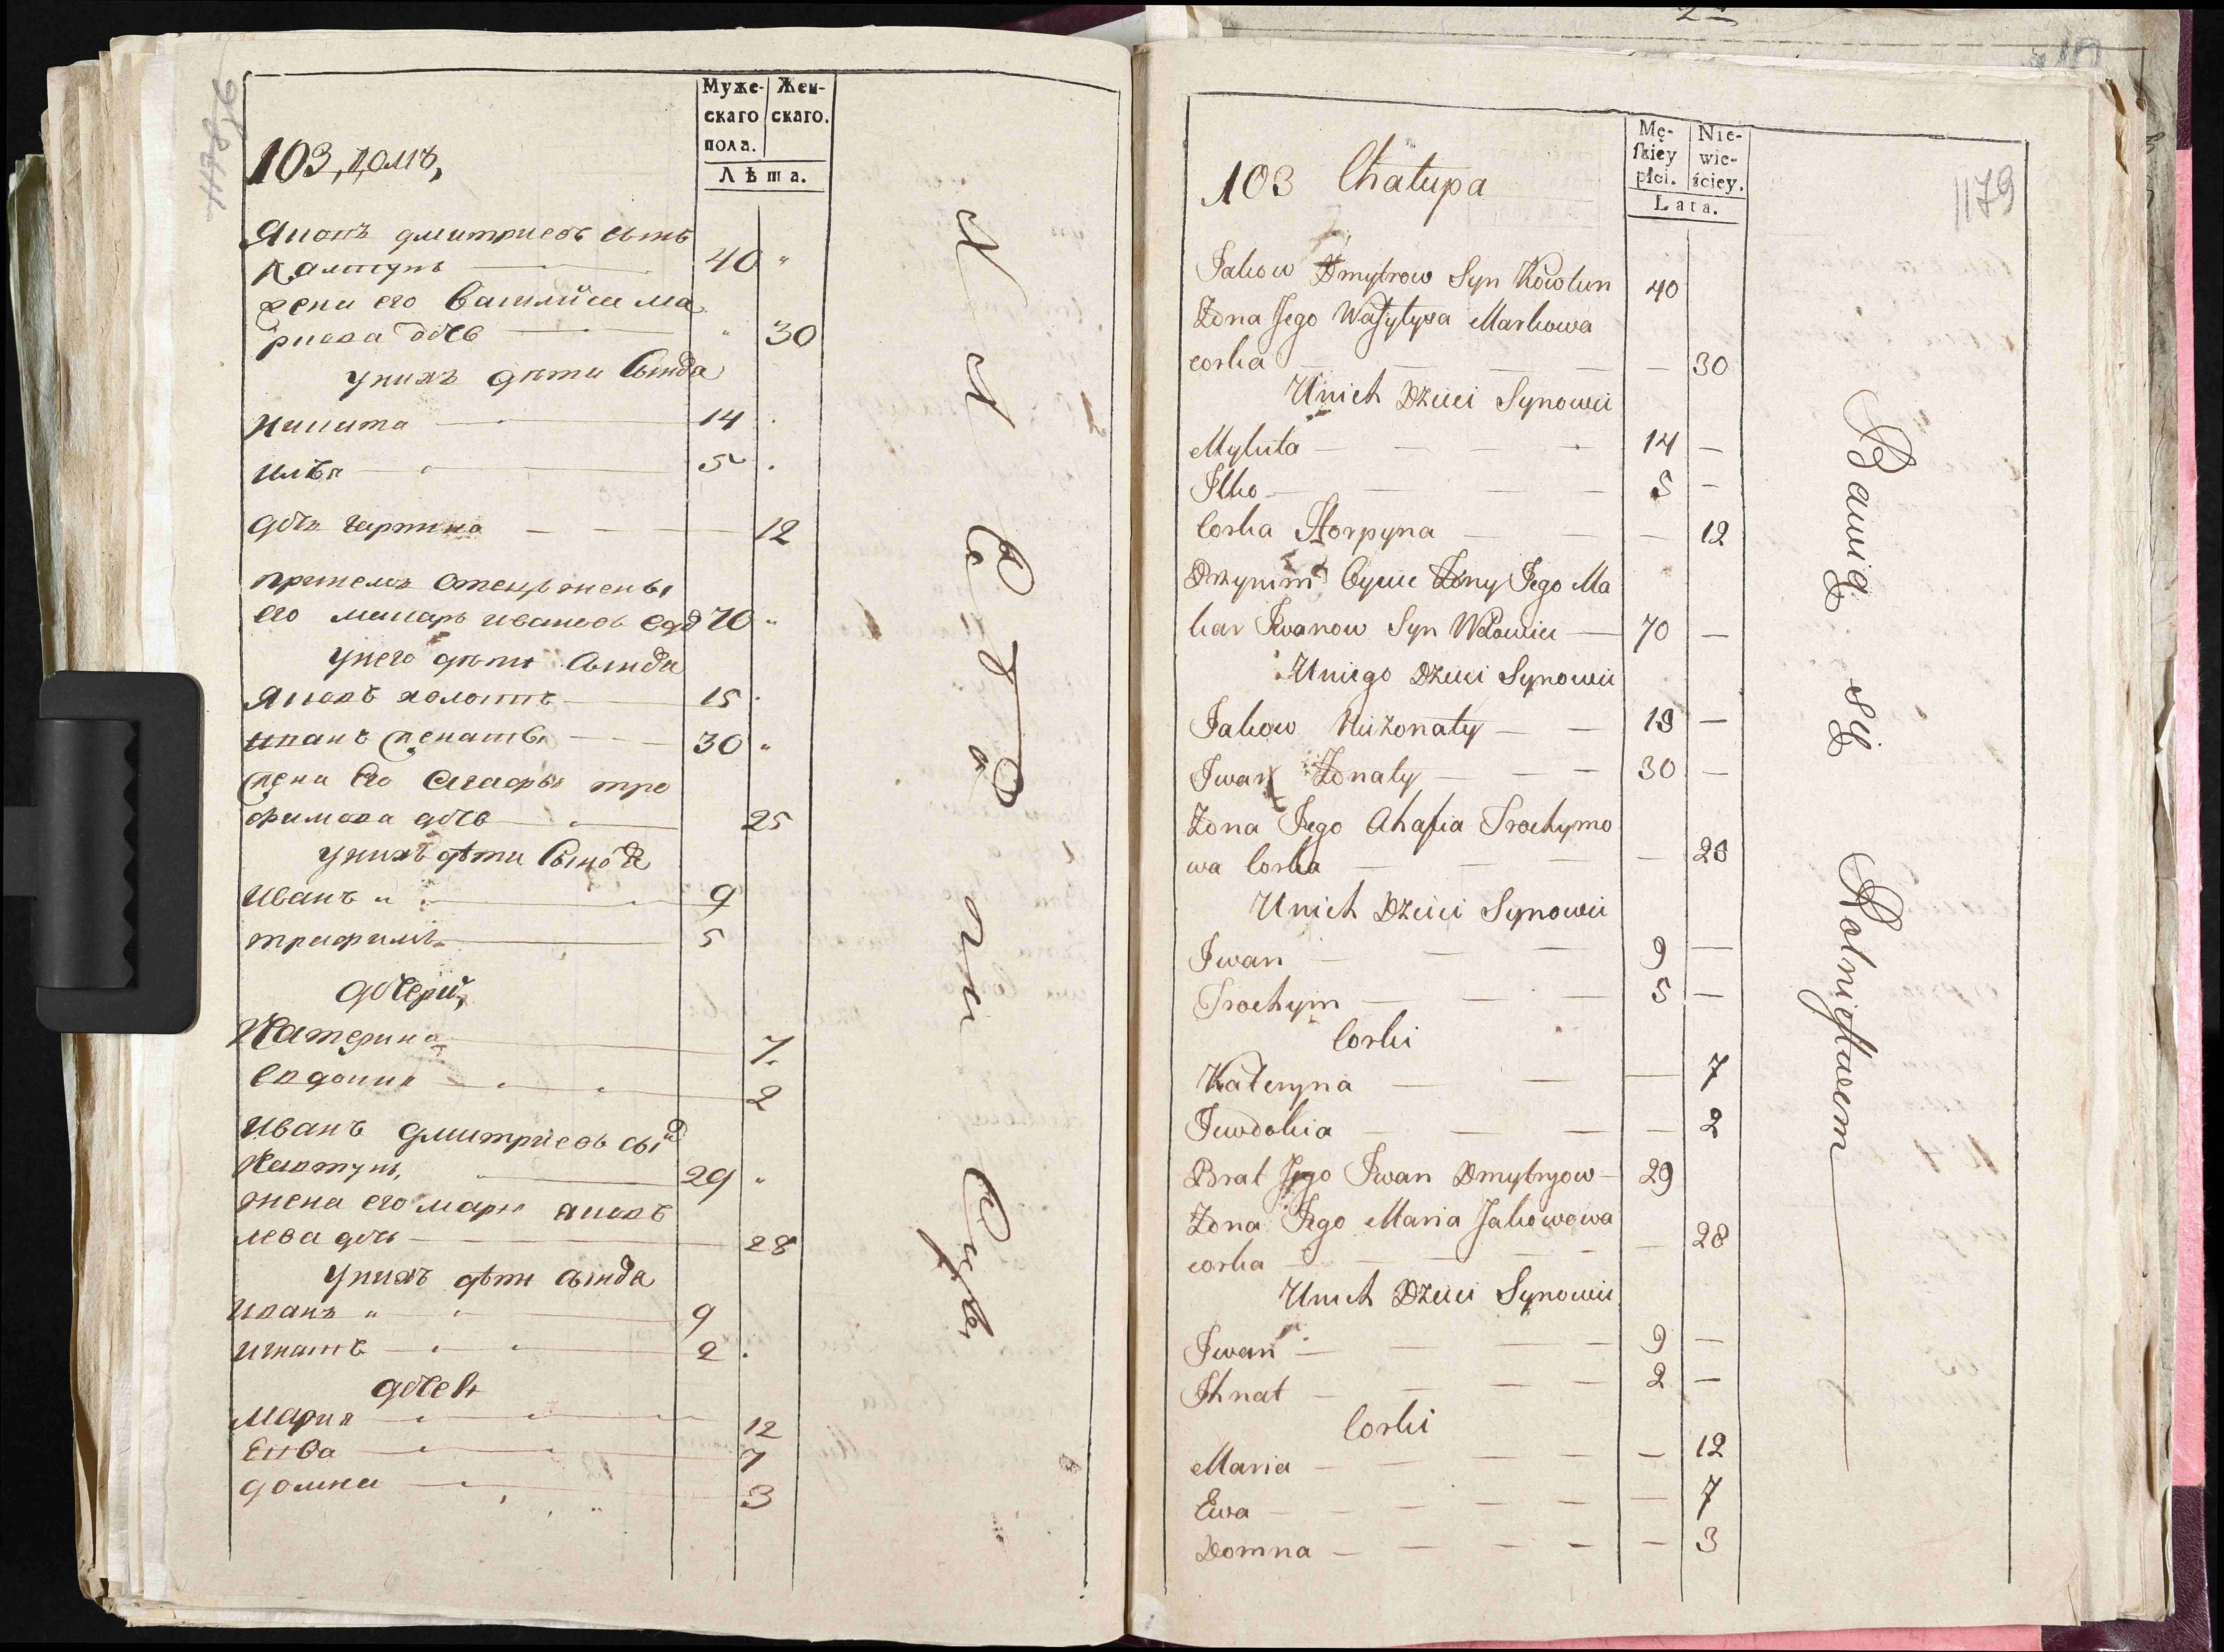 Муже-
скаго
пола.
Жен-
скаго.
Лѣта.
103, домъ,
Яковъ дмитриевъ сынъ
40
жена его Василиса Ма
ркова дочь 30
у нихъ дѣти сынове
Никита 14
илья 5
дочь 12
отецъ жены
его макаръ ивановъ 70
у него дѣти сынове
Яковъ холостъ 15
иванъ женатъ 30
жена его Агафья тро
фимова дочь 25
у нихъ дѣти сынове
Иванъ 9
трофимъ 5
дочери,
Катерина 7
Евдокия 2
Иванъ дмитриевъ сынъ
29
жена его марья яков
лева дочь 28
у нихъ дѣти сынове
Иванъ 9
игнатъ 2
дочери
Мария 12
Евва 7
домна 3
Mę-
skiey
płci.
Nie-
wie-
ściey.
Lata.
1179
103 Chałupa
Jakow Dmytrow Syn Kowtun 40
Żona Jego Wasylysa Markowa
corka — 30
U nich Dzieci Synowie
Mykita — 14 —
Ilko — 5 —
Corka Horpyna — 12
Przynim Oyciec Żony Jego Ma
kar Iwanow Syn Wdowiec — 70 —
U niego Dzieci Synowie
Jakow Nieżonaty — 15 —
Iwan Żonaty — 30 —
Żona Jego Ahafia Trochymo
wa Corka — 25
U nich Dzieci Synowie
Iwan — 9 —
Trochym — 5 —
Corki
Kateryna — 7
Iewdokia — 2
Brat Jego Iwan Dmytryow — 29
Żona Jego Maria Jakowowa
corka — 28
U nich Dzieci Synowie
Iwan — 9 —
Ihnat — 2 —
Corki
Maria — 12
Ewa — 7
Domna — 3
Bawią się Rolnictwem